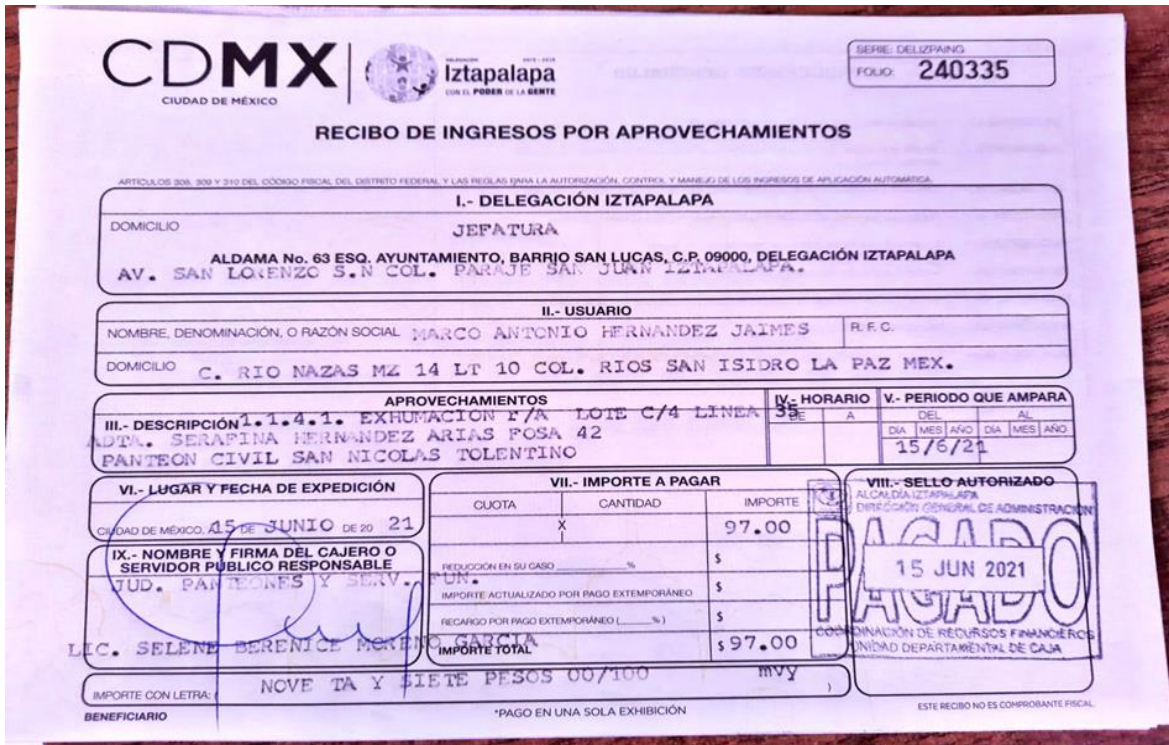 CDMX
CIUDAD DE MÉXICO
DELEGACIÓN
Iztapalapa
CON EL PODER DE LA GENTE
SERIE: DELIZPAING
FOLIO: 240335
RECIBO DE INGRESOS POR APROVECHAMIENTOS
ARTÍCULOS 308, 309 Y 310 DEL CÓDIGO FISCAL DEL DISTRITO FEDERAL Y LAS REGLAS PARA LA AUTORIZACIÓN, CONTROL Y MANEJO DE LOS INGRESOS DE APLICACIÓN AUTOMÁTICA.
I.- DELEGACIÓN IZTAPALAPA
DOMICILIO JEFATURA
ALDAMA No. 63 ESQ. AYUNTAMIENTO, BARRIO SAN LUCAS, C.P. 09000, DELEGACIÓN IZTAPALAPA
AV. SAN LORENZO S.N COL. PARAJE SAN JUAN IZTAPALAPA.
II.- USUARIO
NOMBRE, DENOMINACIÓN, O RAZÓN SOCIAL MARCO ANTONIO HERNANDEZ JAIMES R. F. C.
DOMICILIO C. RIO NAZAS MZ 14 LT 10 COL. RIOS SAN ISIDRO LA PAZ MEX.
APROVECHAMIENTOS
III.- DESCRIPCIÓN 1.1.4.1. EXHUMACION F/A LOTE C/4 LINEA 35
ADTA. SERAFINA HERNANDEZ ARIAS FOSA 42
PANTEON CIVIL SAN NICOLAS TOLENTINO
IV.- HORARIO
DE A
V.- PERIODO QUE AMPARA
DEL AL
DÍA MES AÑO DÍA MES AÑO
15/6/21
VI.- LUGAR Y FECHA DE EXPEDICIÓN
CIUDAD DE MÉXICO, A 15 DE JUNIO DE 20 21
IX.- NOMBRE Y FIRMA DEL CAJERO O
SERVIDOR PÚBLICO RESPONSABLE
JUD. PANTEONES Y SERV. FUN.
LIC. SELENE BERENICE MORENO GARCIA
VII.- IMPORTE A PAGAR
CUOTA CANTIDAD IMPORTE
X 97.00
REDUCCIÓN EN SU CASO %  $
IMPORTE ACTUALIZADO POR PAGO EXTEMPORÁNEO $
RECARGO POR PAGO EXTEMPORÁNEO ( %) $
IMPORTE TOTAL $ 97.00
VIII.- SELLO AUTORIZADO
ALCALDÍA IZTAPALAPA
DIRECCIÓN GENERAL DE ADMINISTRACIÓN
PAGADO
15 JUN 2021
COORDINACIÓN DE RECURSOS FINANCIEROS
UNIDAD DEPARTAMENTAL DE CAJA
IMPORTE CON LETRA: ( NOVE TA Y SIETE PESOS 00/100 mvy )
BENEFICIARIO
*PAGO EN UNA SOLA EXHIBICIÓN
ESTE RECIBO NO ES COMPROBANTE FISCAL